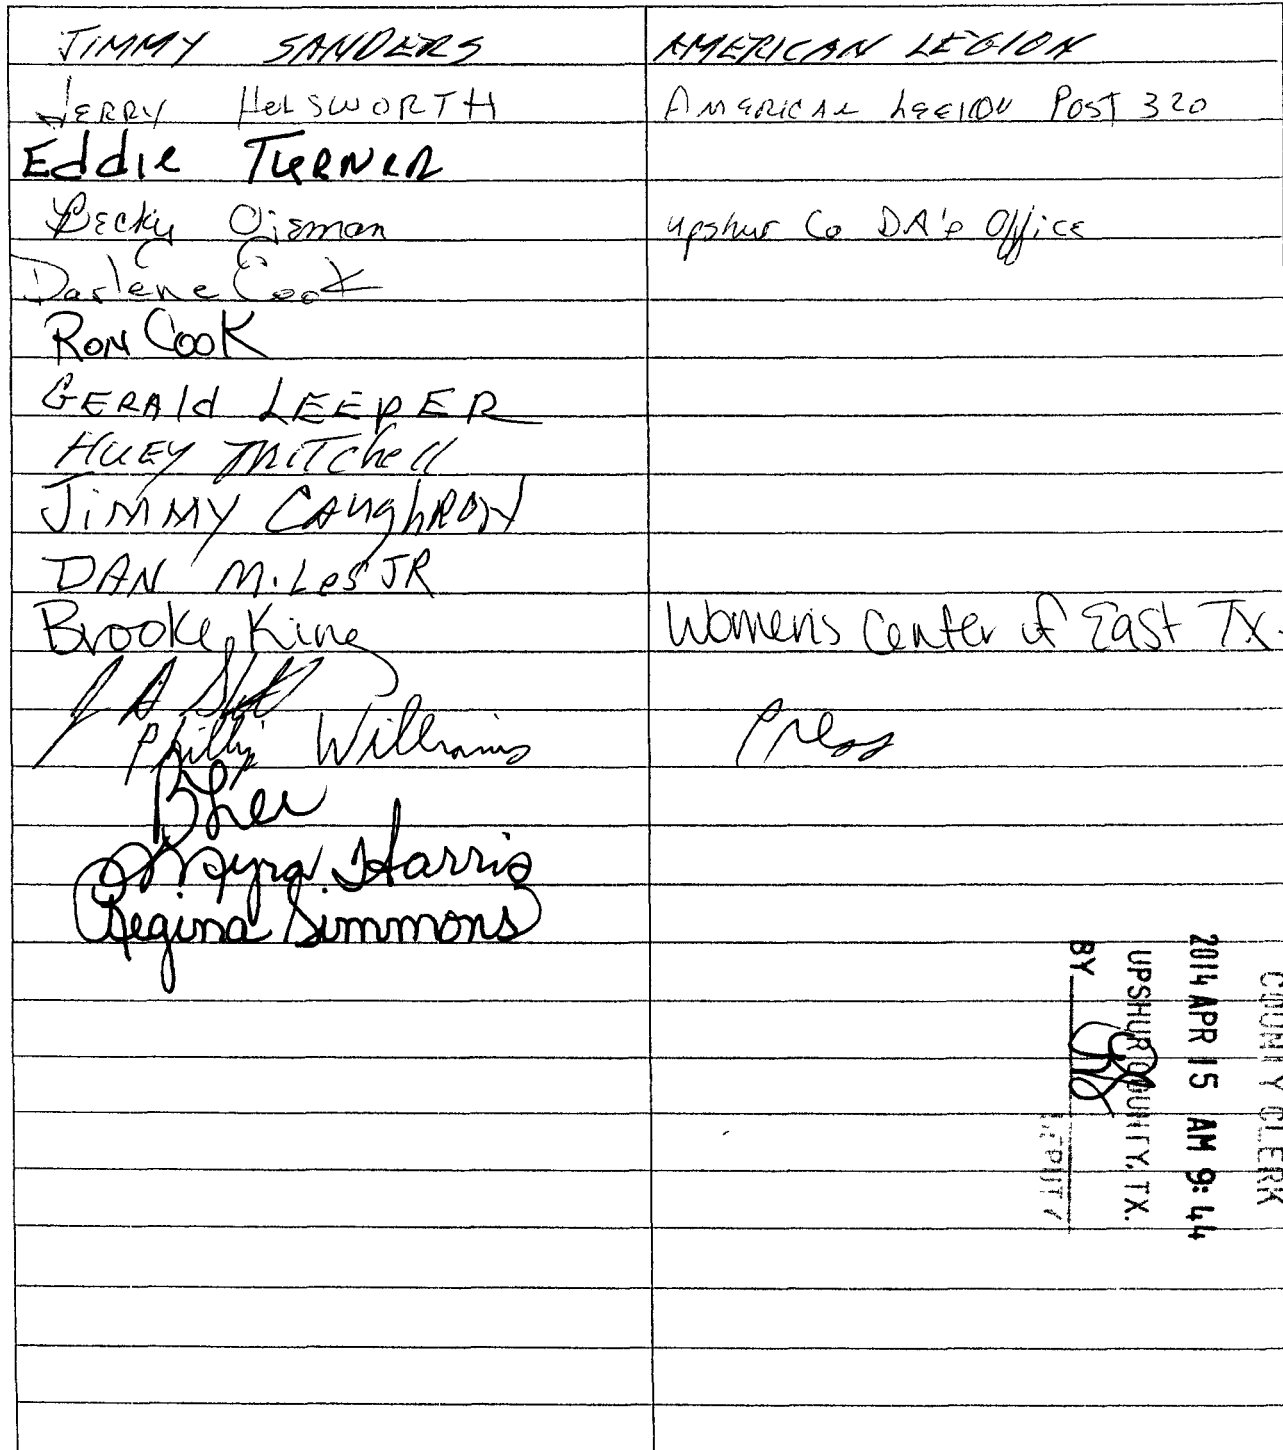 JIMMY SANDERS AMERICAN LEGION
JERRY HOLSWORTH AMERICAN LEGION POST 320
Eddie TURNER
Becky upshur Co DA's Office
Darlene Cook
RON COOK
GERALD LEEPER
HUEY MITCHELL
JIMMY CAUGHRON
DAN MiLes JR
Brooke King Womens Center of East TX.
J A
Phillip Williams Press
Myra Harris
Regina Simmons
COUNTY CLERK
2014 APR 15 AM 9:44
UPSHUR COUNTY, TX.
BY
DEPUTY